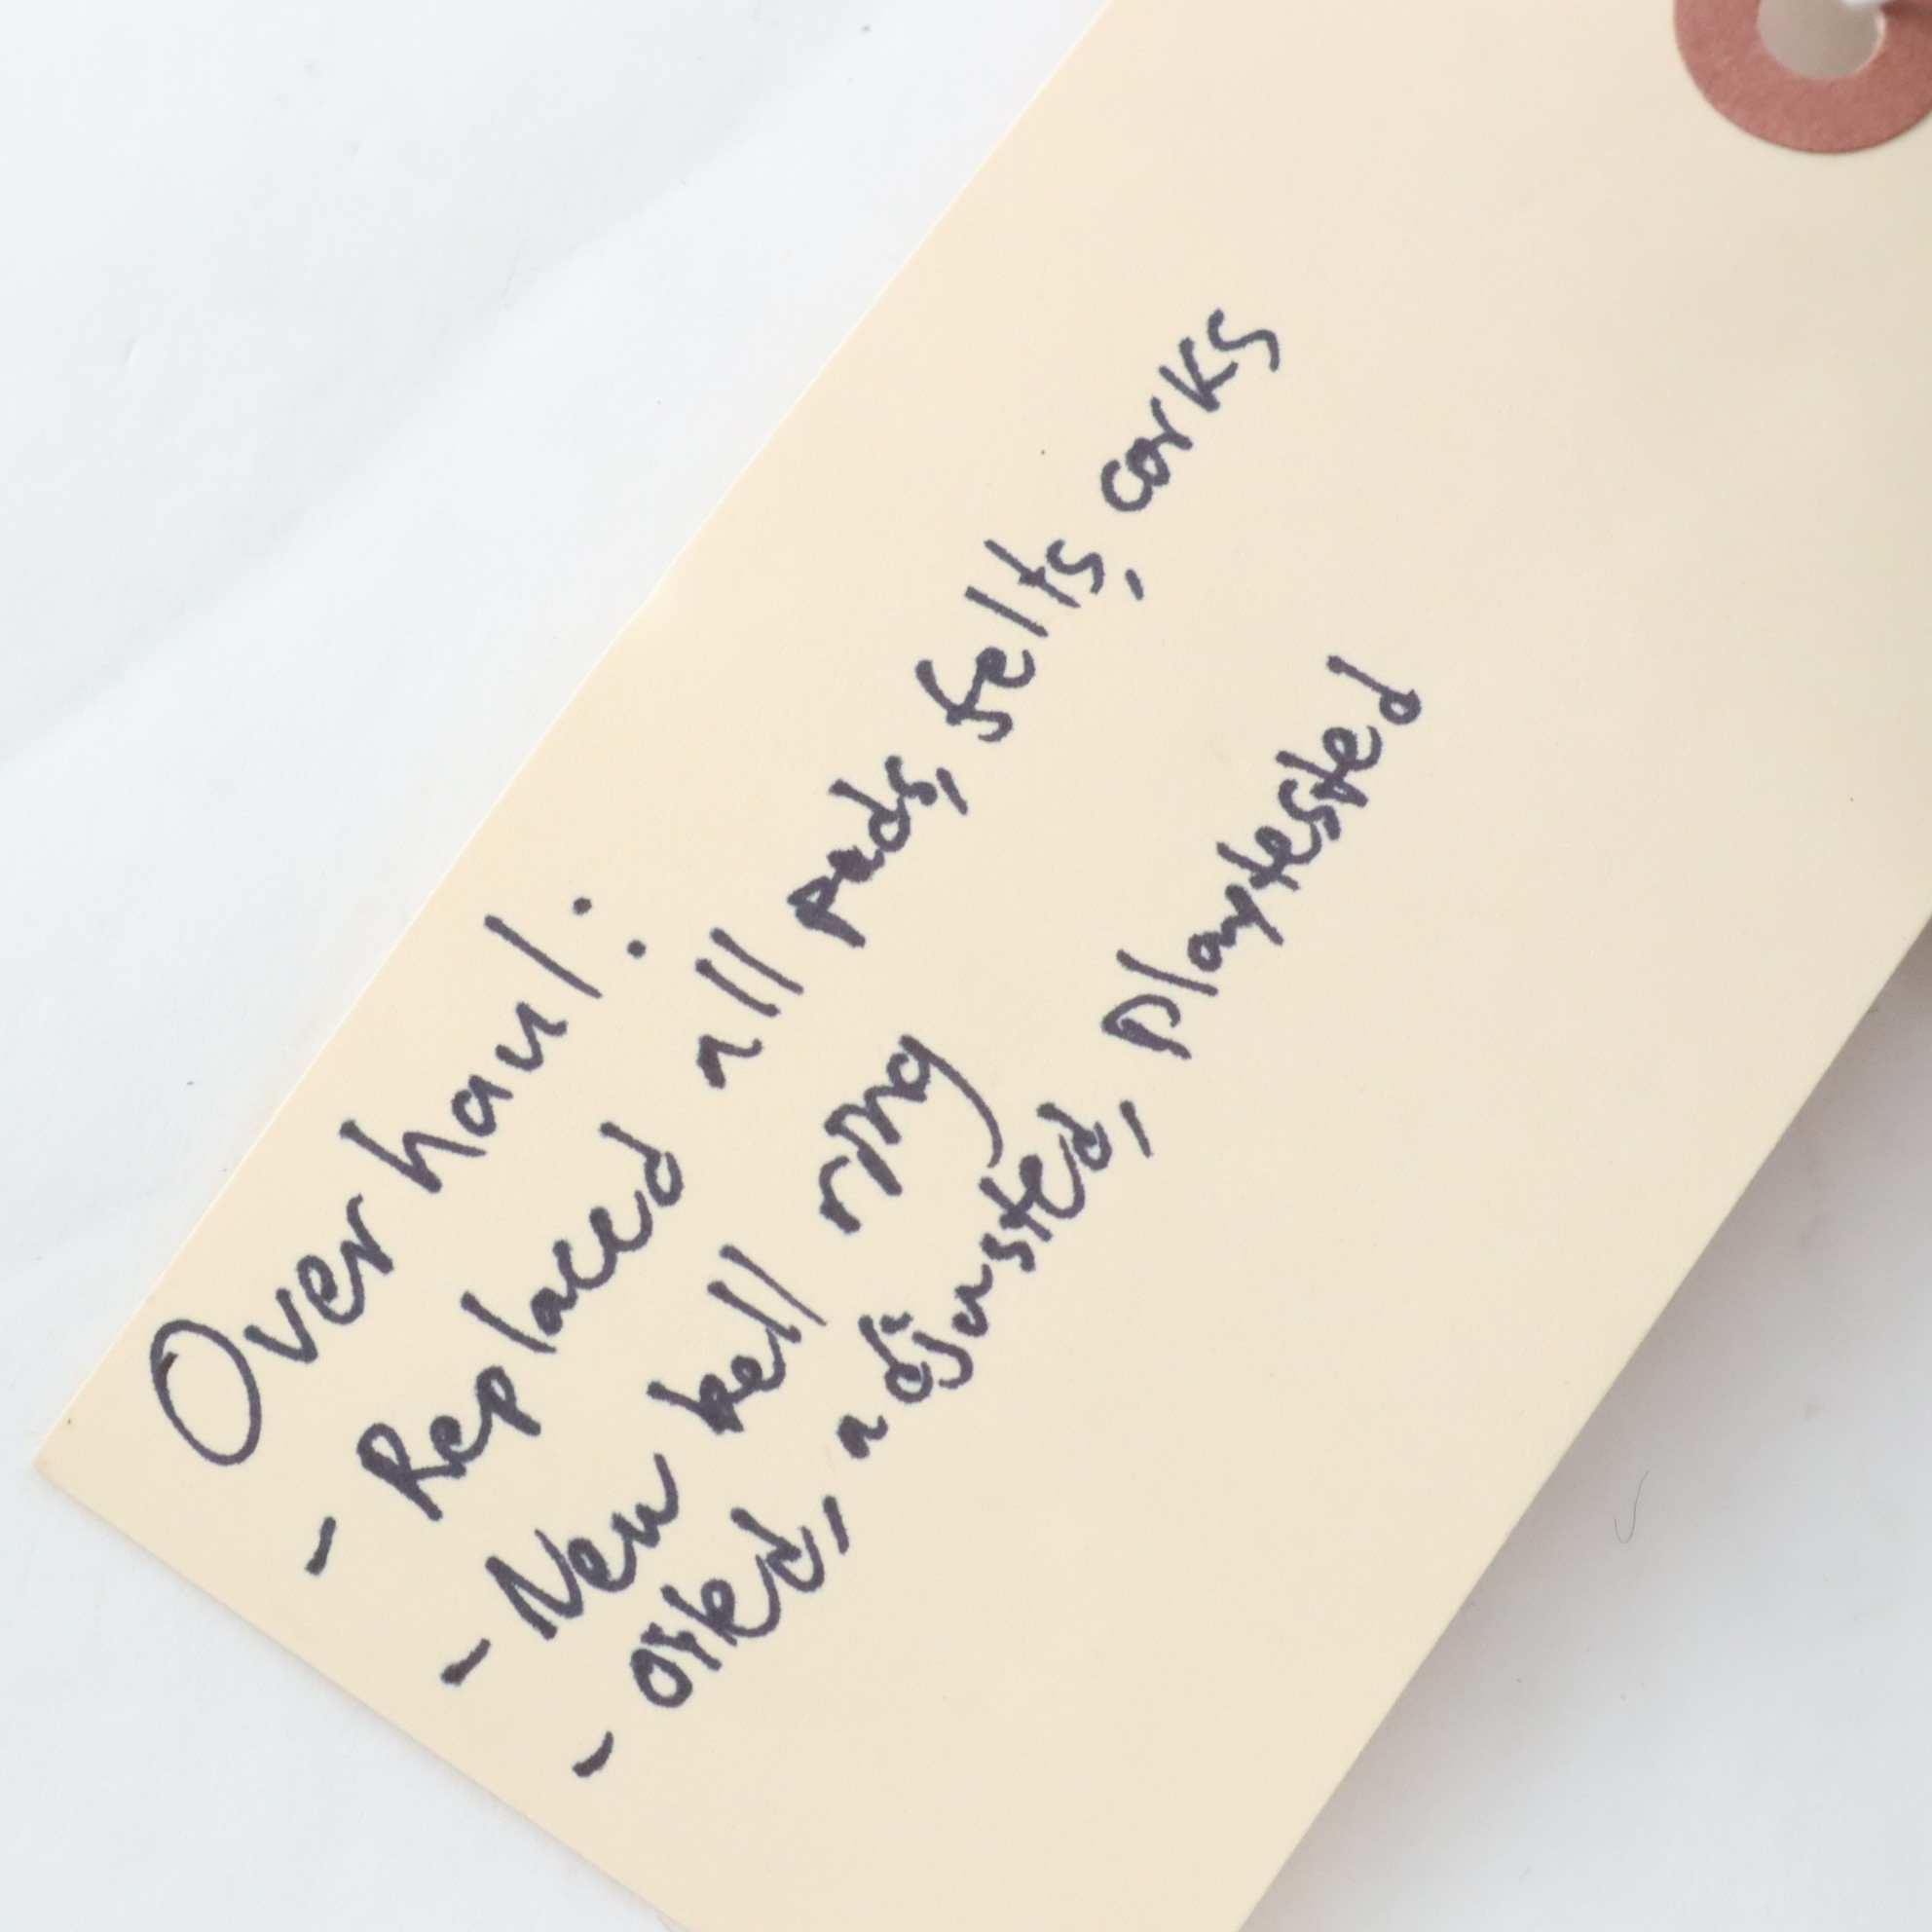 Overhaul:
- Replaced all pads, felts, corks
- New bell ring
- oiled, adjusted, playtested